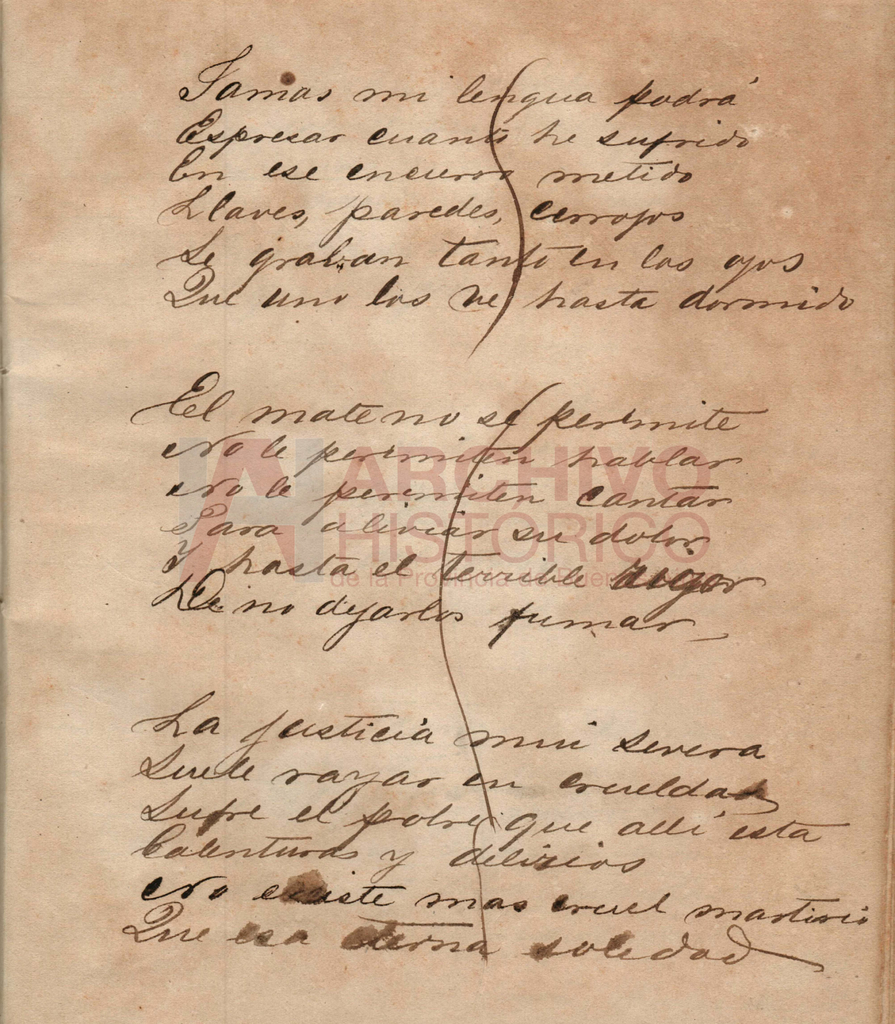 Jamas mi lengua podrá
Espresar cuanto he sufrido
En ese encierro metido
Llaves, paredes, cerrojos
Se graban tanto en los ojos
Que uno los ve hasta dormido
El mate no se permite
No le permiten hablar
No le permiten cantar
Para aliviar su dolor
Y hasta el terrible rigor
De no dejarlos fumar
La justicia mui severa
Suele rayar en crueldad
Sufre el pobre que allí está
Calenturas y delirios
No existe mas cruel martirio
Que esa eterna soledad
ARCHIVO
HISTÓRICO
de la Provincia de